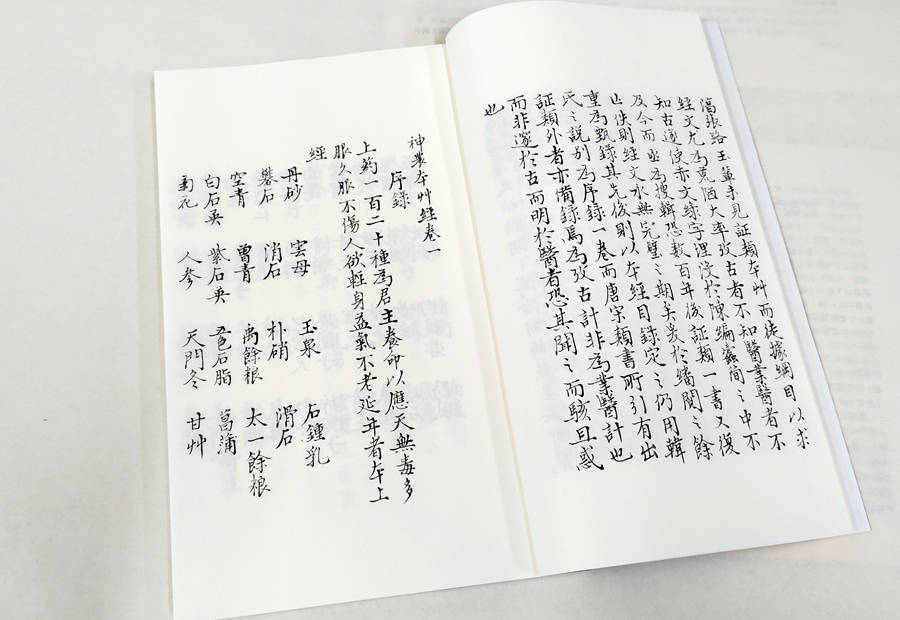 馮張路玉輩未見証類本艸而徒據綱目以求
經文尤為荒陋大率攷古者不知醫業醫者不
知古遂使赤文綠字湮沒於陳編蠹簡之中不
及今而亟為搜輯恐數百年後証類一書又復
亡佚則經文永無完璧之期矣爰於繙閱之餘
重為甄錄其先後則以本經目錄定之仍用韓
氏之說別為序錄一卷而唐宋類書所引有出
証類外者亦備錄焉為攷古計非為業醫計也
而非邃於古而明於醫者恐其閱之而駭且惑
也
神農本艸經卷一
序錄
上葯一百二十種為君主養命以應天無毒多
服久服不傷人欲輕身益氣不老延年者本上
經
丹砂 雲母 玉泉 石鍾乳
礬石 消石 朴硝 滑石
空青 曾青 禹餘根 太一餘根
白石英 紫石英 五色石脂 菖蒲
菊花 人參 天門冬 甘艸